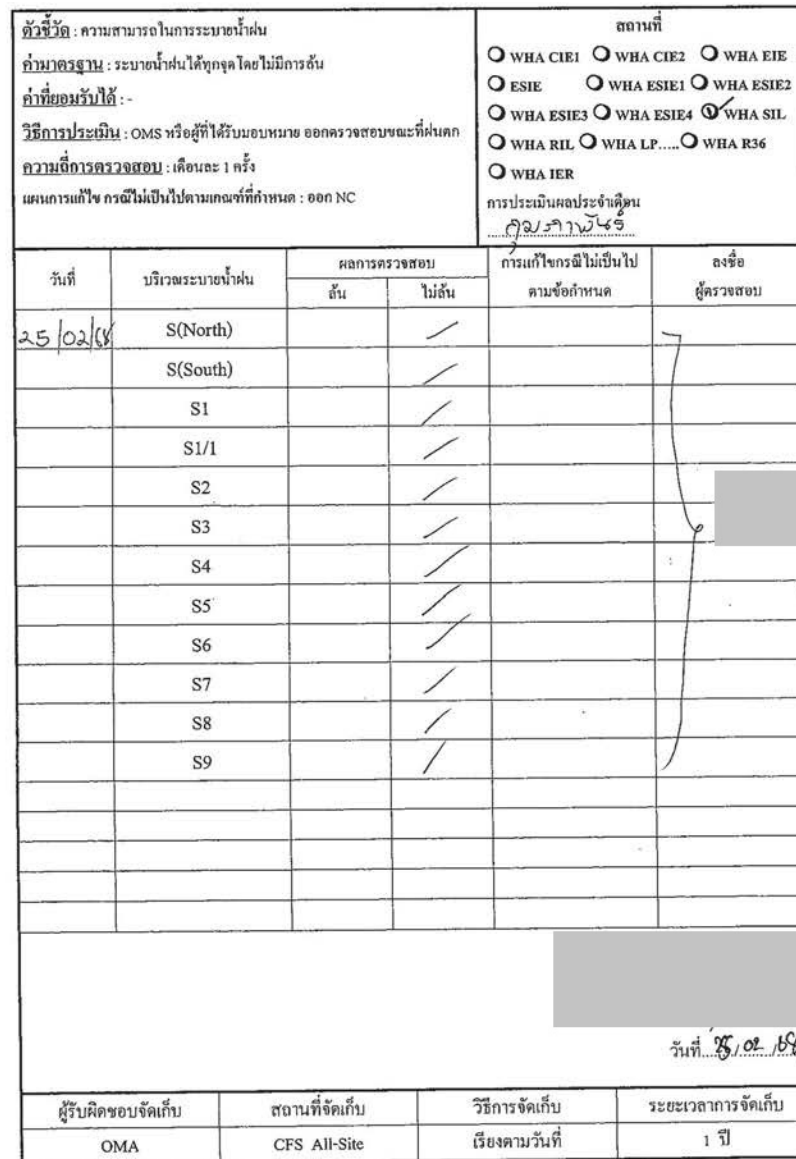 ตัวชี้วัด : ความสามารถในการระบายน้ำฝน
ค่ามาตรฐาน : ระบายน้ำฝนได้ทุกจุด โดยไม่มีการล้น
ค่าที่ยอมรับได้ : -
วิธีการประเมิน : OMS หรือผู้ที่ได้รับมอบหมาย ออกตรวจสอบขณะที่ฝนตก
ความถี่การตรวจสอบ : เดือนละ 1 ครั้ง
แผนการแก้ไข กรณีไม่เป็นไปตามเกณฑ์ที่กำหนด : ออก NC
สถานที่
WHA CIE1 WHA CIE2 WHA EIE
ESIE WHA ESIE1 WHA ESIE2
WHA ESIE3 WHA ESIE4 WHA SIL
WHA RIL WHA LP..... WHA R36
WHA IER
การประเมินผลประจำเดือน
กุมภาพันธ์
วันที่ บริเวณระบายน้ำฝน ผลการตรวจสอบ การแก้ไขกรณีไม่เป็นไป ลงชื่อ
ล้น ไม่ล้น ตามข้อกำหนด ผู้ตรวจสอบ
25/02/68 S(North)
S(South)
S1
S1/1
S2
S3
S4
S5
S6
S7
S8
S9
วันที่ 25/02/68
ผู้รับผิดชอบจัดเก็บ สถานที่จัดเก็บ วิธีการจัดเก็บ ระยะเวลาการจัดเก็บ
OMA CFS All-Site เรียงตามวันที่ 1 ปี